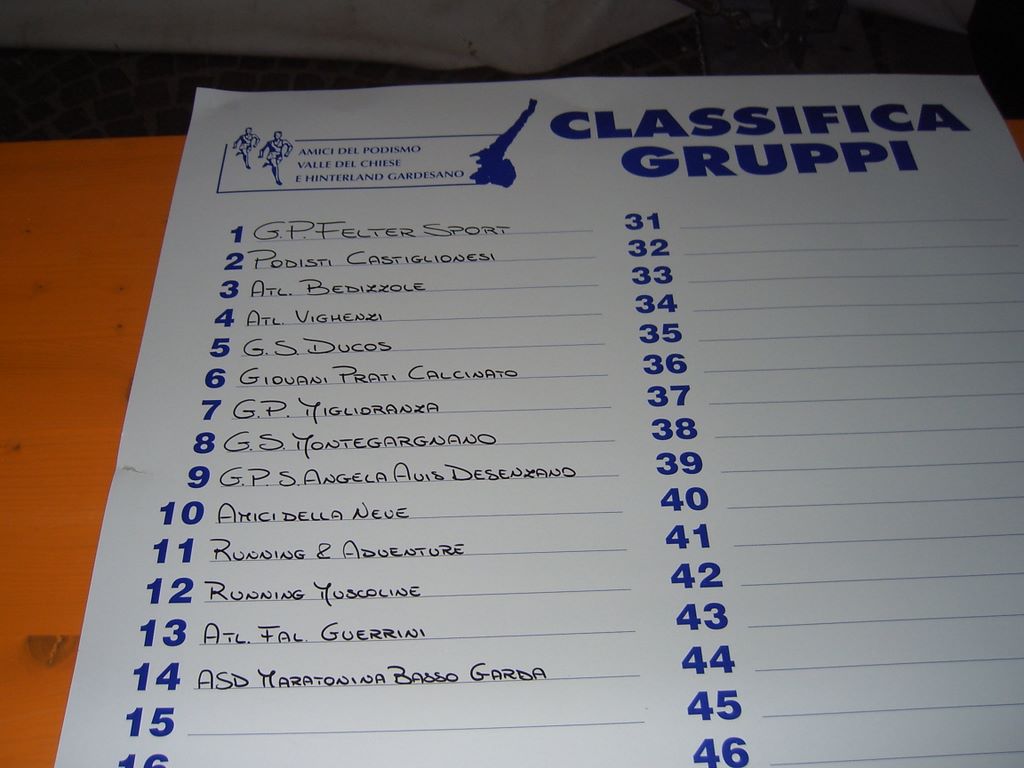 AMICI DEL PODISMO
VALLE DEL CHIESE
E HINTERLAND GARDESANO
CLASSIFICA
GRUPPI
1 G.P. FELTER SPORT
2 PODISTI CASTIGLIONESI
3 ATL. BEDIZZOLE
4 ATL. VIGHENZI
5 G.S. DUCOS
6 GIOVANI PRATI CALCINATO
7 G.P. MIGLIORANZA
8 G.S. MONTEGARGNANO
9 G.P. S. ANGELA AVIS DESENZANO
10 AMICI DELLA NEVE
11 RUNNING & ADVENTURE
12 RUNNING MUSCOLINE
13 ATL. FAL. GUERRINI
14 ASD MARATONINA BASSO GARDA
15
16
31
32
33
34
35
36
37
38
39
40
41
42
43
44
45
46